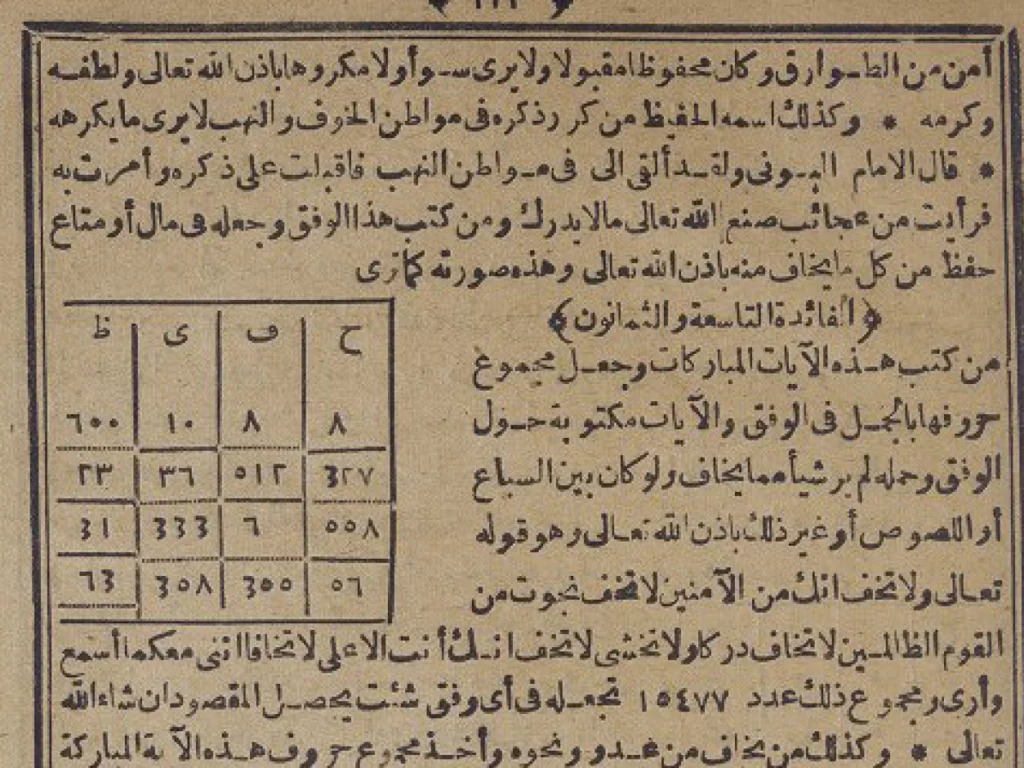 أمن من الطوارق وكان محفوظا مقبولا ولا يرى سوأ ولا مكروها باذن الله تعالى ولطفه
وكرمه * وكذلك اسمه الحفيظ من كرر ذكره فى مواطن الخوف والنهب لا يرى ما يكرهه
* قال الامام البونى ولقد ألقى الى فى مواطن النهب فاقبلت على ذكره وأمرت به
فرأيت من عجائب صنع الله تعالى مالا يدرك ومن كتب هذا الوفق وجعله فى مال أو متاع
حفظ من كل ما يخاف منه باذن الله تعالى وهذه صورته كما ترى
﴿الفائدة التاسعة والثمانون﴾
ح ف ى ظ
٨ ٨ ١٠ ٦٠٠
3٢٧ ٥١٢ ٣٦ ٢٣
٥٥٨ ٦ 333 31
٥٦ 3٥٥ 3٥٨ ٦3
من كتب هذه الآيات المباركات وجعل مجموع
حروفها بالجمل فى الوفق والآيات مكتوبة حول
الوفق وحمله لم ير شيأ مما يخاف ولو كان بين السباع
أو اللصوص أو غير ذلك باذن الله تعالى وهو قوله
تعالى ولا تخف انك من الآمنين لا تخف نجوت من
القوم الظالمين لا تخاف دركا ولا تخشى لا تخف انك أنت الاعلى لا تخافا اننى معكما أسمع
وأرى ومجموع ذلك عدد ١٥٤٧٧ تجعله فى أى وفق شئت يحصل المقصود ان شاء الله
تعالى * وكذلك من يخاف من عدو ونحوه وأخذ مجموع حروف هذه الآية المباركة